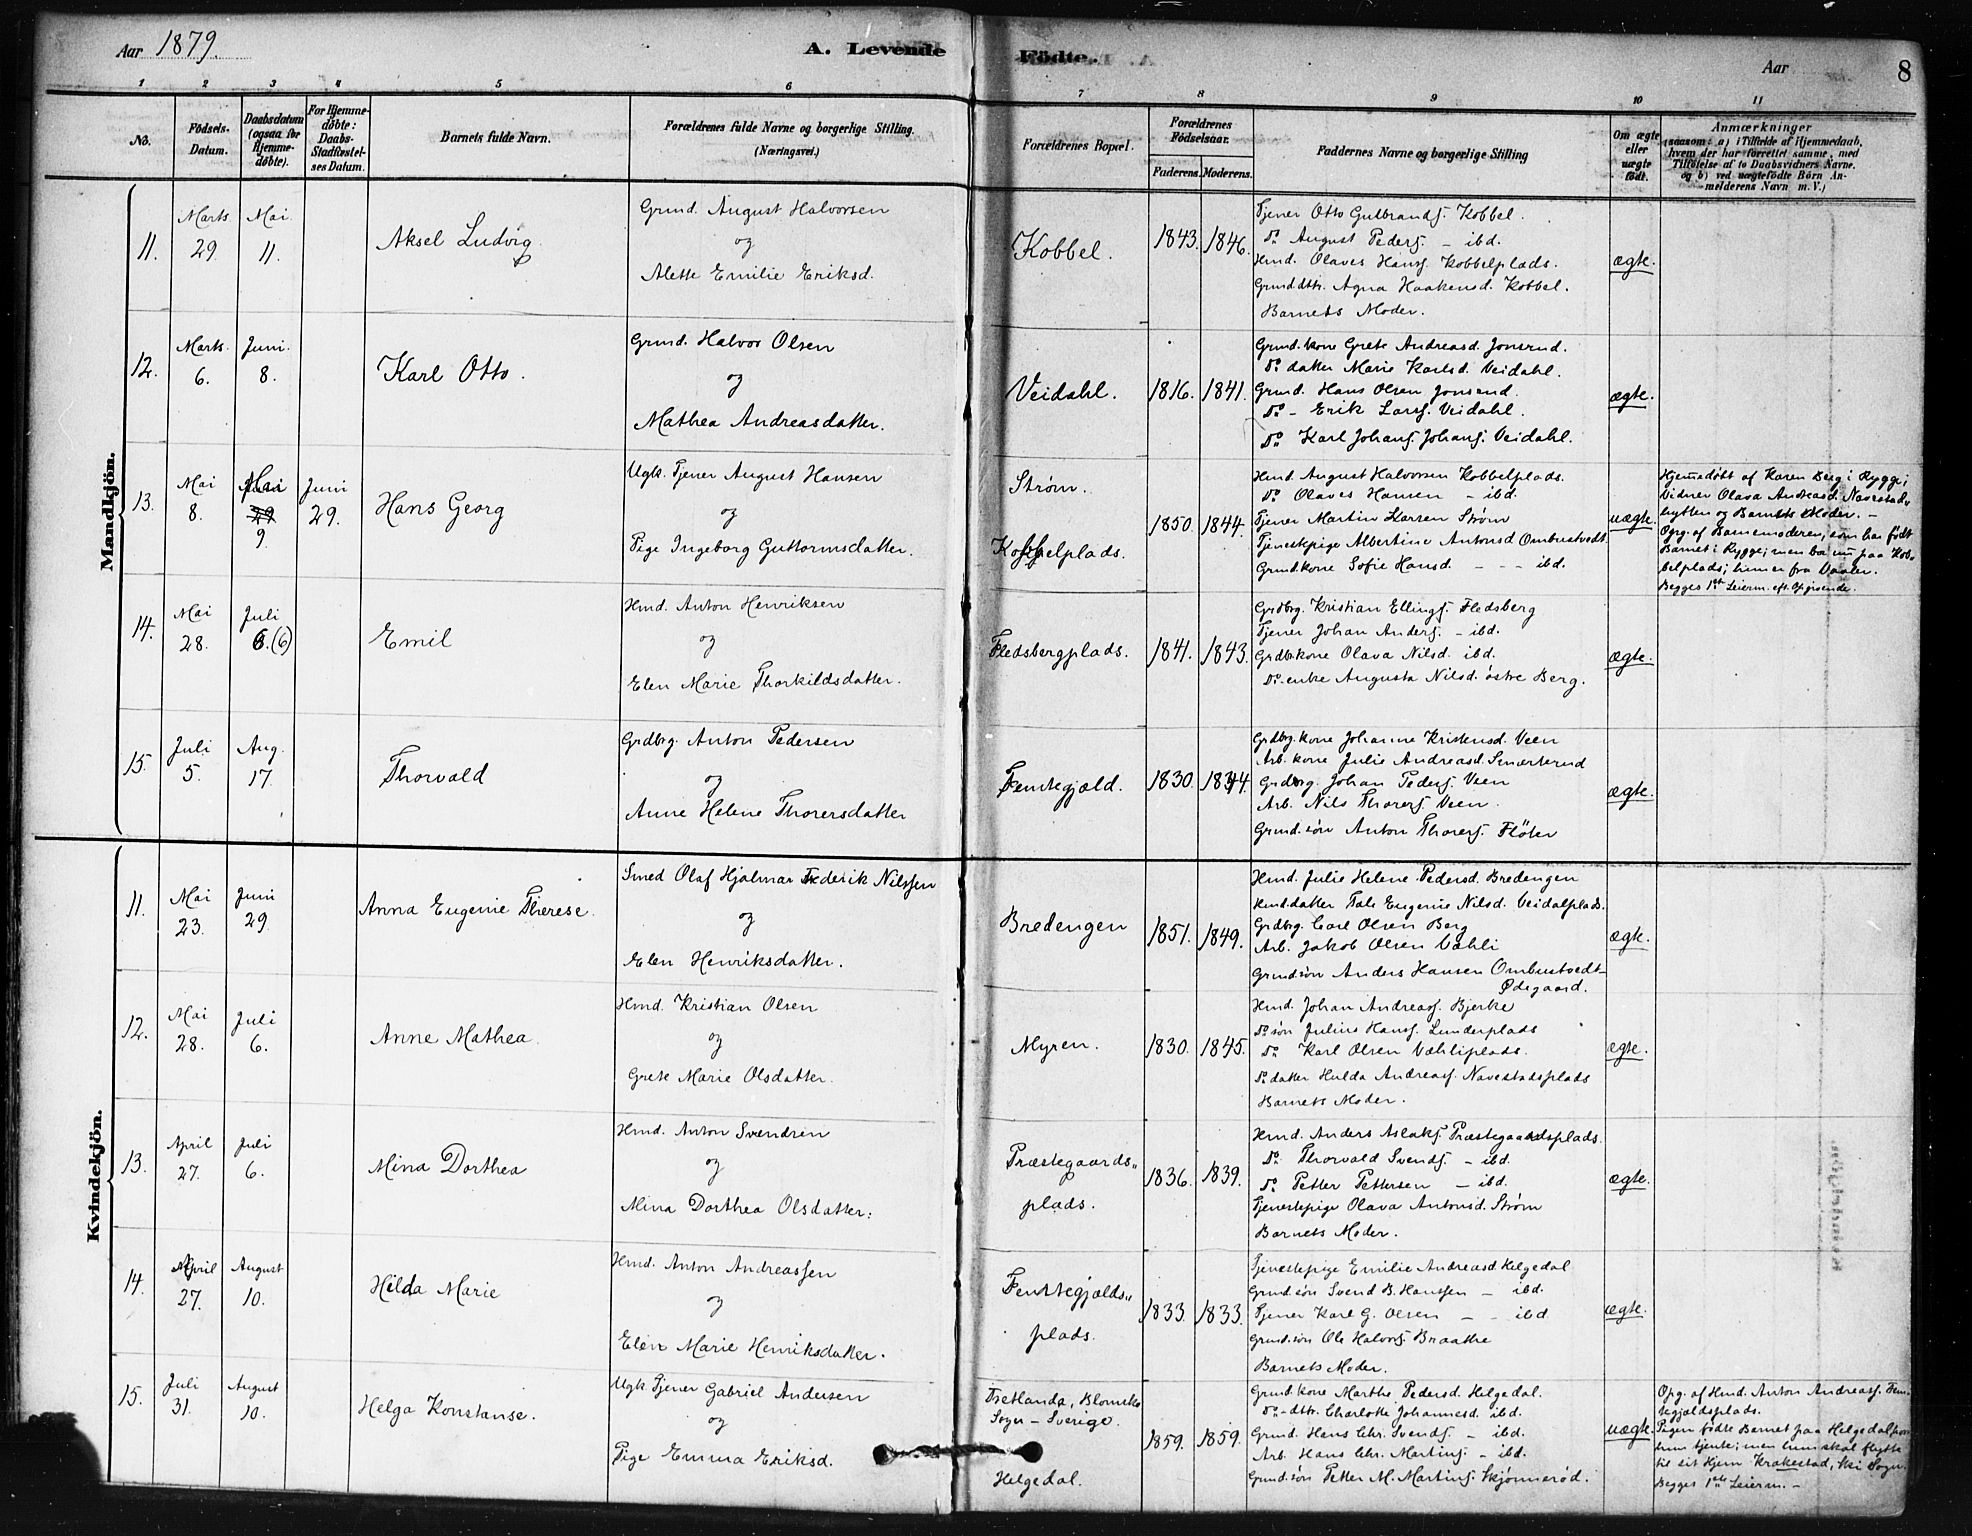 Aar 1879.
A. Levende Födte.
Aar
8
1 2 3 4 5 6 7 8 9 10 11
No.
Födsels-Datum.
Daabsdatum (ogsaa for Hjemme-døbte).
For Hjemme-døbte: Daabs-Stadfæstel-ses Datum.
Barnets fulde Navn.
Forældrenes fulde Navne og borgerlige Stilling.
(Næringsvei.)
Forældrenes Bopæl.
Forældrenes Födselsaar.
Faderens. Moderens.
Faddernes Navne og borgerlige Stilling
Om ægte eller uægte født.
Anmærkninger
(saasom: a) i Tilfælde af Hjemmedaab,
hvem der har forrettet samme, med
Tilföielse af to Daabsvidners Navne.
og b) ved uægtefödte Börn An-
melderens Navn m. V.)
Mandkjön.
11.
Marts 29.
Mai 11.
Aksel Ludvig
Grmd. August Halvorsen
og
Alette Emilie Eriksd.
Kobbel.
1843. 1846.
Tjener Otto Gulbrands. Kobbel.
Do. August Peders. – ibd.
Hmd. Olaves Hans. Kobbelplads.
Grmd.dttr. Agna Haakensd. Kobbel.
Barnets Moder.
ægte.
12.
Marts. 6.
Juni. 8.
Karl Otto.
Grmd. Halvor Olsen
og
Mathea Andreasdatter.
Veidahl.
1816. 1841.
Grmd. kone Grete Andreasd. Jonsrud.
Do. datter Marie Karlsd. Veidahl.
Grmd. Hans Olsen Jonsrud.
Do – Erik Lars. Veidahl.
Do. Karl Johans. Johans. Veidahl.
ægte.
13.
Mai 8.
Mai 29 9.
Juni 29.
Hans Georg
Ugk. Tjener August Hansen
og
Pige Ingeborg Guttormsdatter.
Strøm.
Kobbelplads.
1850. 1844.
Hmd. August Halvorsen Kobbelplads.
Do. Olaves Hansen – ibd.
Tjener Martin Larsen Strøm
Tjenestepige Albertine Antonsd Ombustvedt
Grmd.kone Sofie Hansd. – – – ibd.
uægte.
Hjemmedøbt af Karen Berg i Rygge;
Vidner Olava Andreasd. Navestad-
hytten og Barnets Moder. –
Opg. af Barnemoderen, som har født
Barnet i Rygge; men bor nu paa Kob-
belplads; hun er fra Vaaler.
Begges 1ste Leierm. eft. Opgivende.
14.
Mai 28.
Juli 6. (6)
Emil
Hmd. Anton Henriksen
og
Elen Marie Thorkildsdatter.
Fledsbergplads.
1841. 1843.
Grdbrg. Kristian Ellings. Fledsberg
Tjener Johan Anders. – ibd.
Grdbr.kone Olava Nilsd. ibd.
Do. enke Augusta Nilsd. østre Berg.
ægte.
15.
Juli 5.
Aug. 17.
Thorvald
Grdbrg. Anton Pedersen
og
Anne Helene Thorersdatter
Femtegjæld.
1830. 1844.
Grdbrg. kone Johanne Kristensd. Veen
Arb. kone Julie Andreasd. Smørterud
Grdbrg. Johan Peders. Veen
Arb. Nils Thorers. Veen.
Grmd. søn Anton Thorers. Fløter
ægte.
Kvindekjön.
11.
Mai 23.
Juni 29.
Anna Eugenie Therese.
Smed Olaf Hjalmar Frederik Nilssen
og
Elen Henriksdatter.
Bredengen
1851. 1849.
Hmd. Julie Helene Pedersd. Bredengen
Hmd.datter Tale Eugenie Nilsd. Veidalplads.
Grdbrg. Carl Olsen Berg
Arb. Jakob Olsen Vahli
Grmd.søn Anders Hansen Ombustvedt-
Ødegaard.
ægte.
12.
Mai 28.
Juli 6.
Anne Mathea.
Hmd. Kristian Olsen
og
Grete Marie Olsdatter.
Myren.
1830. 1845.
Hmd. Johan Andreas. Bjerke
Do. søn Julius Hans. Lunderplads
Do. Karl Olsen Vahliplads.
Do. datter Hulda Andreas. Navestadsplads
Barnets Moder.
ægte.
13.
April 27.
Juli 6.
Mina Dorthea
Hmd. Anton Svendsen
og
Mina Dorthea Olsdatter.
Præstegaards-
plads.
1836. 1839.
Hmd. Anders Aslaks. Præstegaardsplads.
Do. Thorvald Svends. – ibd.
Do. Petter Pettersen – ibd.
Tjenestepige Olava Antonsd. Strøm
Barnets Moder.
ægte.
14.
April 27.
August 10.
Hilda Marie
Hmd. Anton Andreassen
og
Elen Marie Henriksdatter.
Femtegjælds-
plads.
1833. 1833.
Tjenestepige Emilie Andreasd Helgedal
Grmd. søn Svend B. Hanssen – ibd.
Tjener Karl G. Olsen – – ibd
Grmd. søn Ole Halvors. Braathe
Barnets Moder.
ægte.
15.
Juli 31.
August 10.
Helga Konstanse.
Ugk. Tjener Gabriel Andersen
og
Pige Emma Eriksd.
Sogn – Sverige.
Helgedal.
1859. 1859.
Grmd. kone Marthe Pedersd. Helgedal.
Do. – dttr. Charlotte Johannesd. ibd.
Grmd. Hans Chr. Svends. – ibd.
Arb. Hans Chr. Martins. – ibd.
Grmd. søn Petter M. Martins. Skjønnerød.
uægte.
Opg. af Hmd. Anton Andreas. Fem-
tegjældsplads.
Pigen fødte Barnet paa Helgedal, hvor
hun tjente; men hun skal flytte
til sit Hjem Krakestad, Ski Sogn.
Begges 1ste Leierm. –